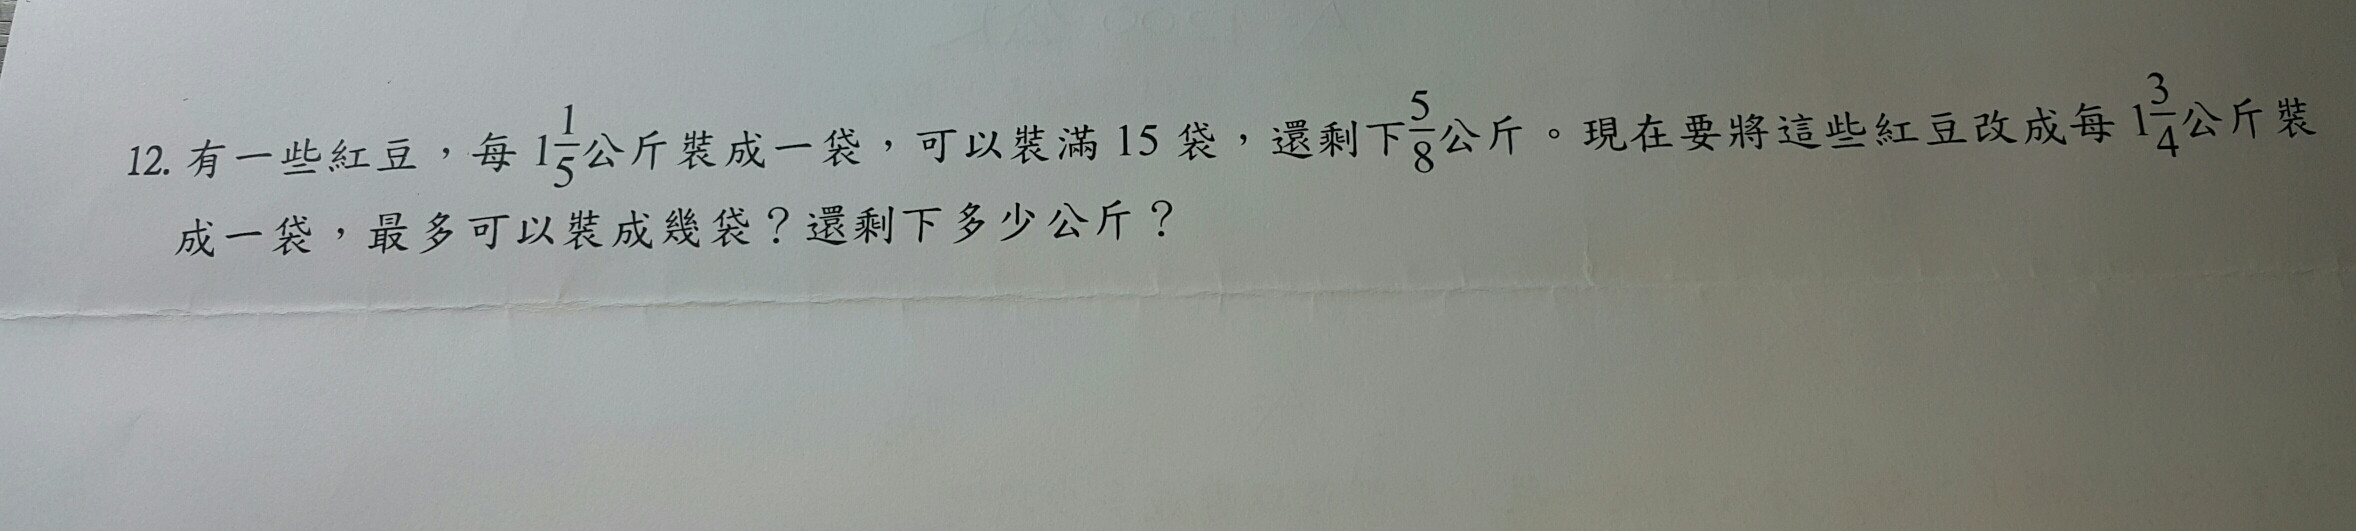 12. 有一些紅豆，每 1 1/5 公斤裝成一袋，可以裝滿 15 袋，還剩下 5/8 公斤。現在要將這些紅豆改成每 1 3/4 公斤裝
成一袋，最多可以裝成幾袋？還剩下多少公斤？